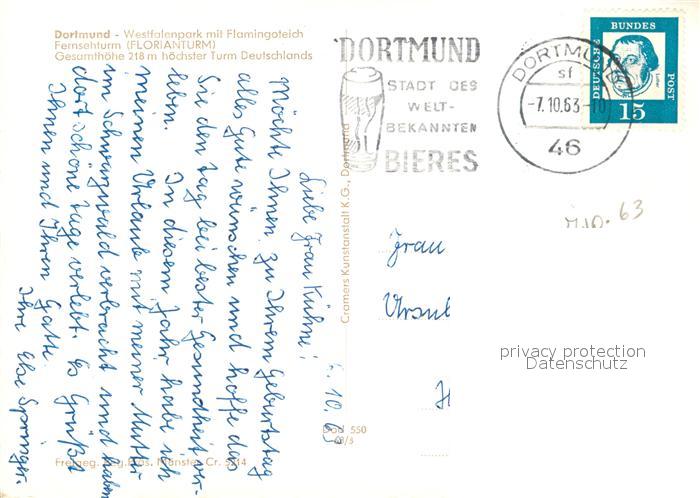 Dortmund - Westfalenpark mit Flamingoteich
Fernsehturm (FLORIANTURM)
Gesamthöhe 218 m höchster Turm Deutschlands
DORTMUND
STADT DES
WELT-
BEKANNTEN
BIERES
DORTMUND
sf
-7.10.63-10
46
DEUTSCHE
BUNDES
POST
Luther
15
7.10.63
Liebe Frau Kühne!
Möchte Ihnen zu Ihrem Geburtstag
alles Gute wünschen und hoffe das
Sie den Tag bei bester Gesundheit ver-
leben. In diesem Jahr habe ich
meinen Urlaub mit meiner Mutter
im Schwarzwald verbracht und haben
dort schöne Tage verlebt. Es Grüßt
Ihnen und Ihren Gatte.
Ihre Else Springer.
10.63
Cramers Kunstanstalt K.G., Dortmund
Frau
Ursul
H
privacy protection
Datenschutz
550
Freigeg. Reg. Präs. Münster Cr. 5214